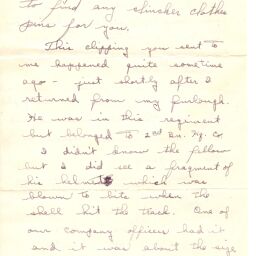 to find any slinker clothes
pins for you.
This clipping you sent to
me happened quite sometime
ago - just shortly after I
returned from my furlough.
He was in this regiment
but belonged to 2nd Bn. Hq. Co.
I didn't know the fellow
but I did see a fragment of
his helmet which was
blown to bits when the
shell hit the track. One of
our company officers had it
and it was about the size